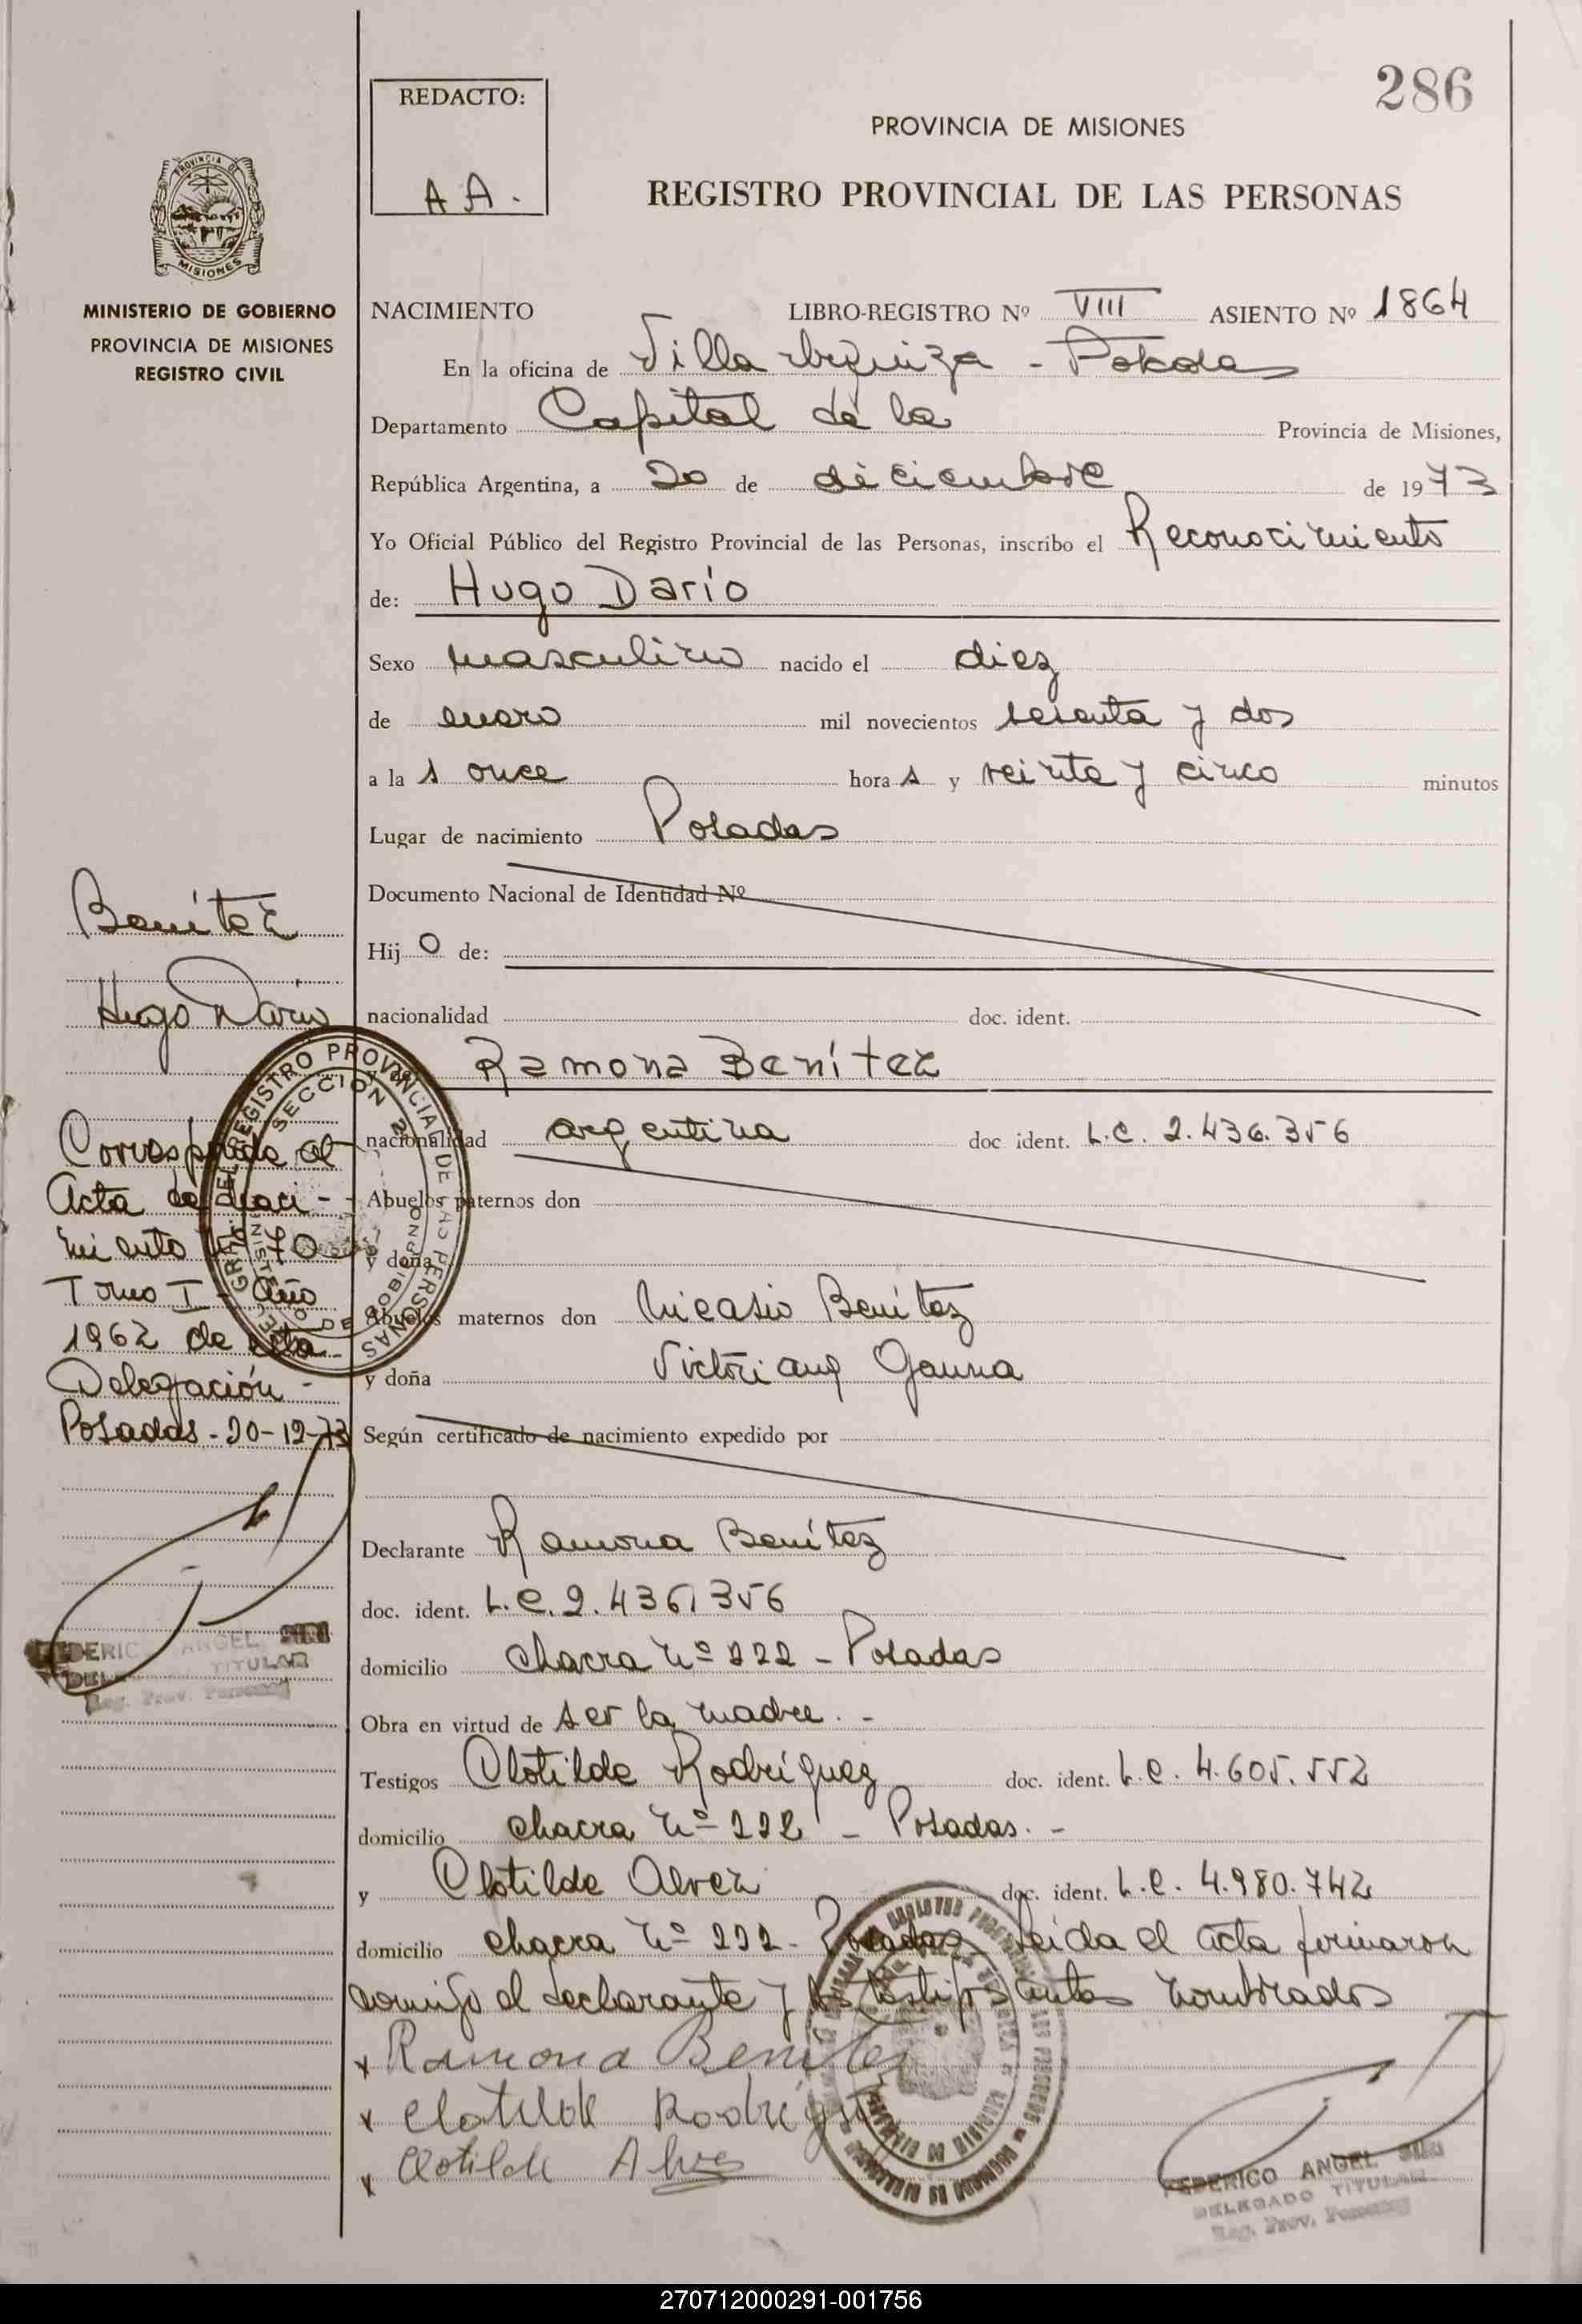 286
REDACTO:
A A.
PROVINCIA DE MISIONES
REGISTRO PROVINCIAL DE LAS PERSONAS
MISIONES
MINISTERIO DE GOBIERNO
PROVINCIA DE MISIONES
REGISTRO CIVIL
NACIMIENTO LIBRO-REGISTRO Nº VIII ASIENTO Nº 1864
En la oficina de Villa Urquiza - Posadas
Departamento Capital de la Provincia de Misiones,
República Argentina, a 20 de diciembre de 1973
Yo Oficial Público del Registro Provincial de las Personas, inscribo el Reconocimiento
de: Hugo Darío
Sexo masculino nacido el diez
de enero mil novecientos sesenta y dos
a las once horas y veinte y cinco minutos
Lugar de nacimiento Posadas
Documento Nacional de Identidad Nº
Hijo de:
nacionalidad doc. ident.
Ramona Benítez
nacionalidad argentina doc ident. L.C. 2.436.356
Abuelos paternos don
y doña
Abuelos maternos don Nicasio Benítez
y doña Victoriana Gauna
Según certificado de nacimiento expedido por
Declarante Ramona Benítez
doc. ident. L.C. 2.436.356
domicilio chacra Nº 222 - Posadas
Obra en virtud de ser la madre. -
Testigos Clotilde Rodríguez doc. ident. L.C. 4.605.552
domicilio chacra Nº 222 - Posadas. -
y Clotilde Alvez doc. ident. L.C. 4.980.742
domicilio chacra Nº 222 - Posadas. Leida el acta firmaron
conmigo el declarante y los testigos antes nombrados
x Ramona Benitez
x Clotilde Rodrigue
x Clotilde Alves
Benítez
Hugo Dario
Corresponde al
Acta de naci-
miento Nº 70
Tomo I - Año
1962 de esta
Delegación -
Posadas - 20-12-73
REGISTRO PROVINCIAL DE LAS PERSONAS
SECCION
FEDERICO ANGEL
DELEGADO TITULAR
Reg. Prov. Personas
FEDERICO ANGEL
DELEGADO TITULAR
Reg. Prov. Personas
270712000291-001756